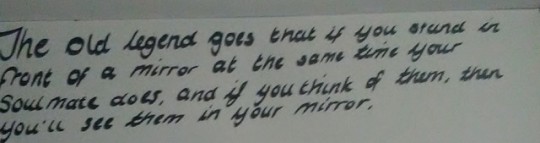 The old legend goes that if you stand in
front of a mirror at the same time your
Soulmate does, and if you think of them, then
you'll see them in your mirror.